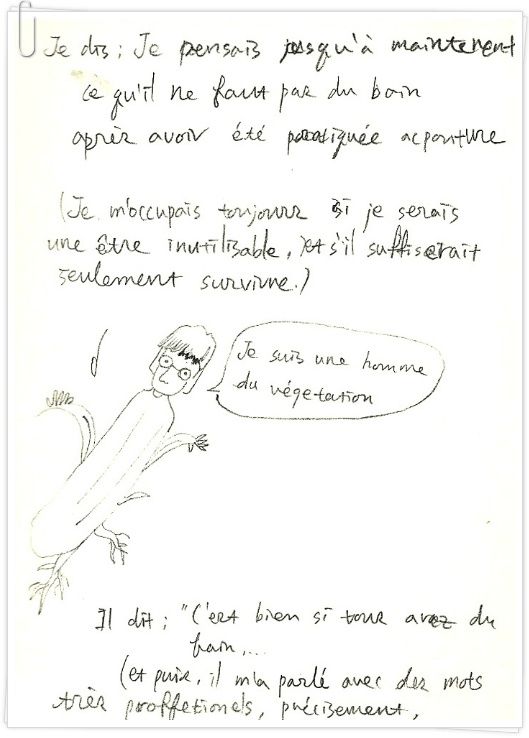 Je dis ; Je pensais jusqu'à maintenent
ce qu'il ne faut par du bain
après avoir été pratiquée acponture
(Je m'occupais toujours si je serais
une être inutilisable, et s'il suffiserait
seulement survivre.)
Je suis une homme
du végetation
Il dit ; "C'est bien si tour avez du
bain,...
(et puis, il m'a parlé avec des mots
très proffetionels, précisement,